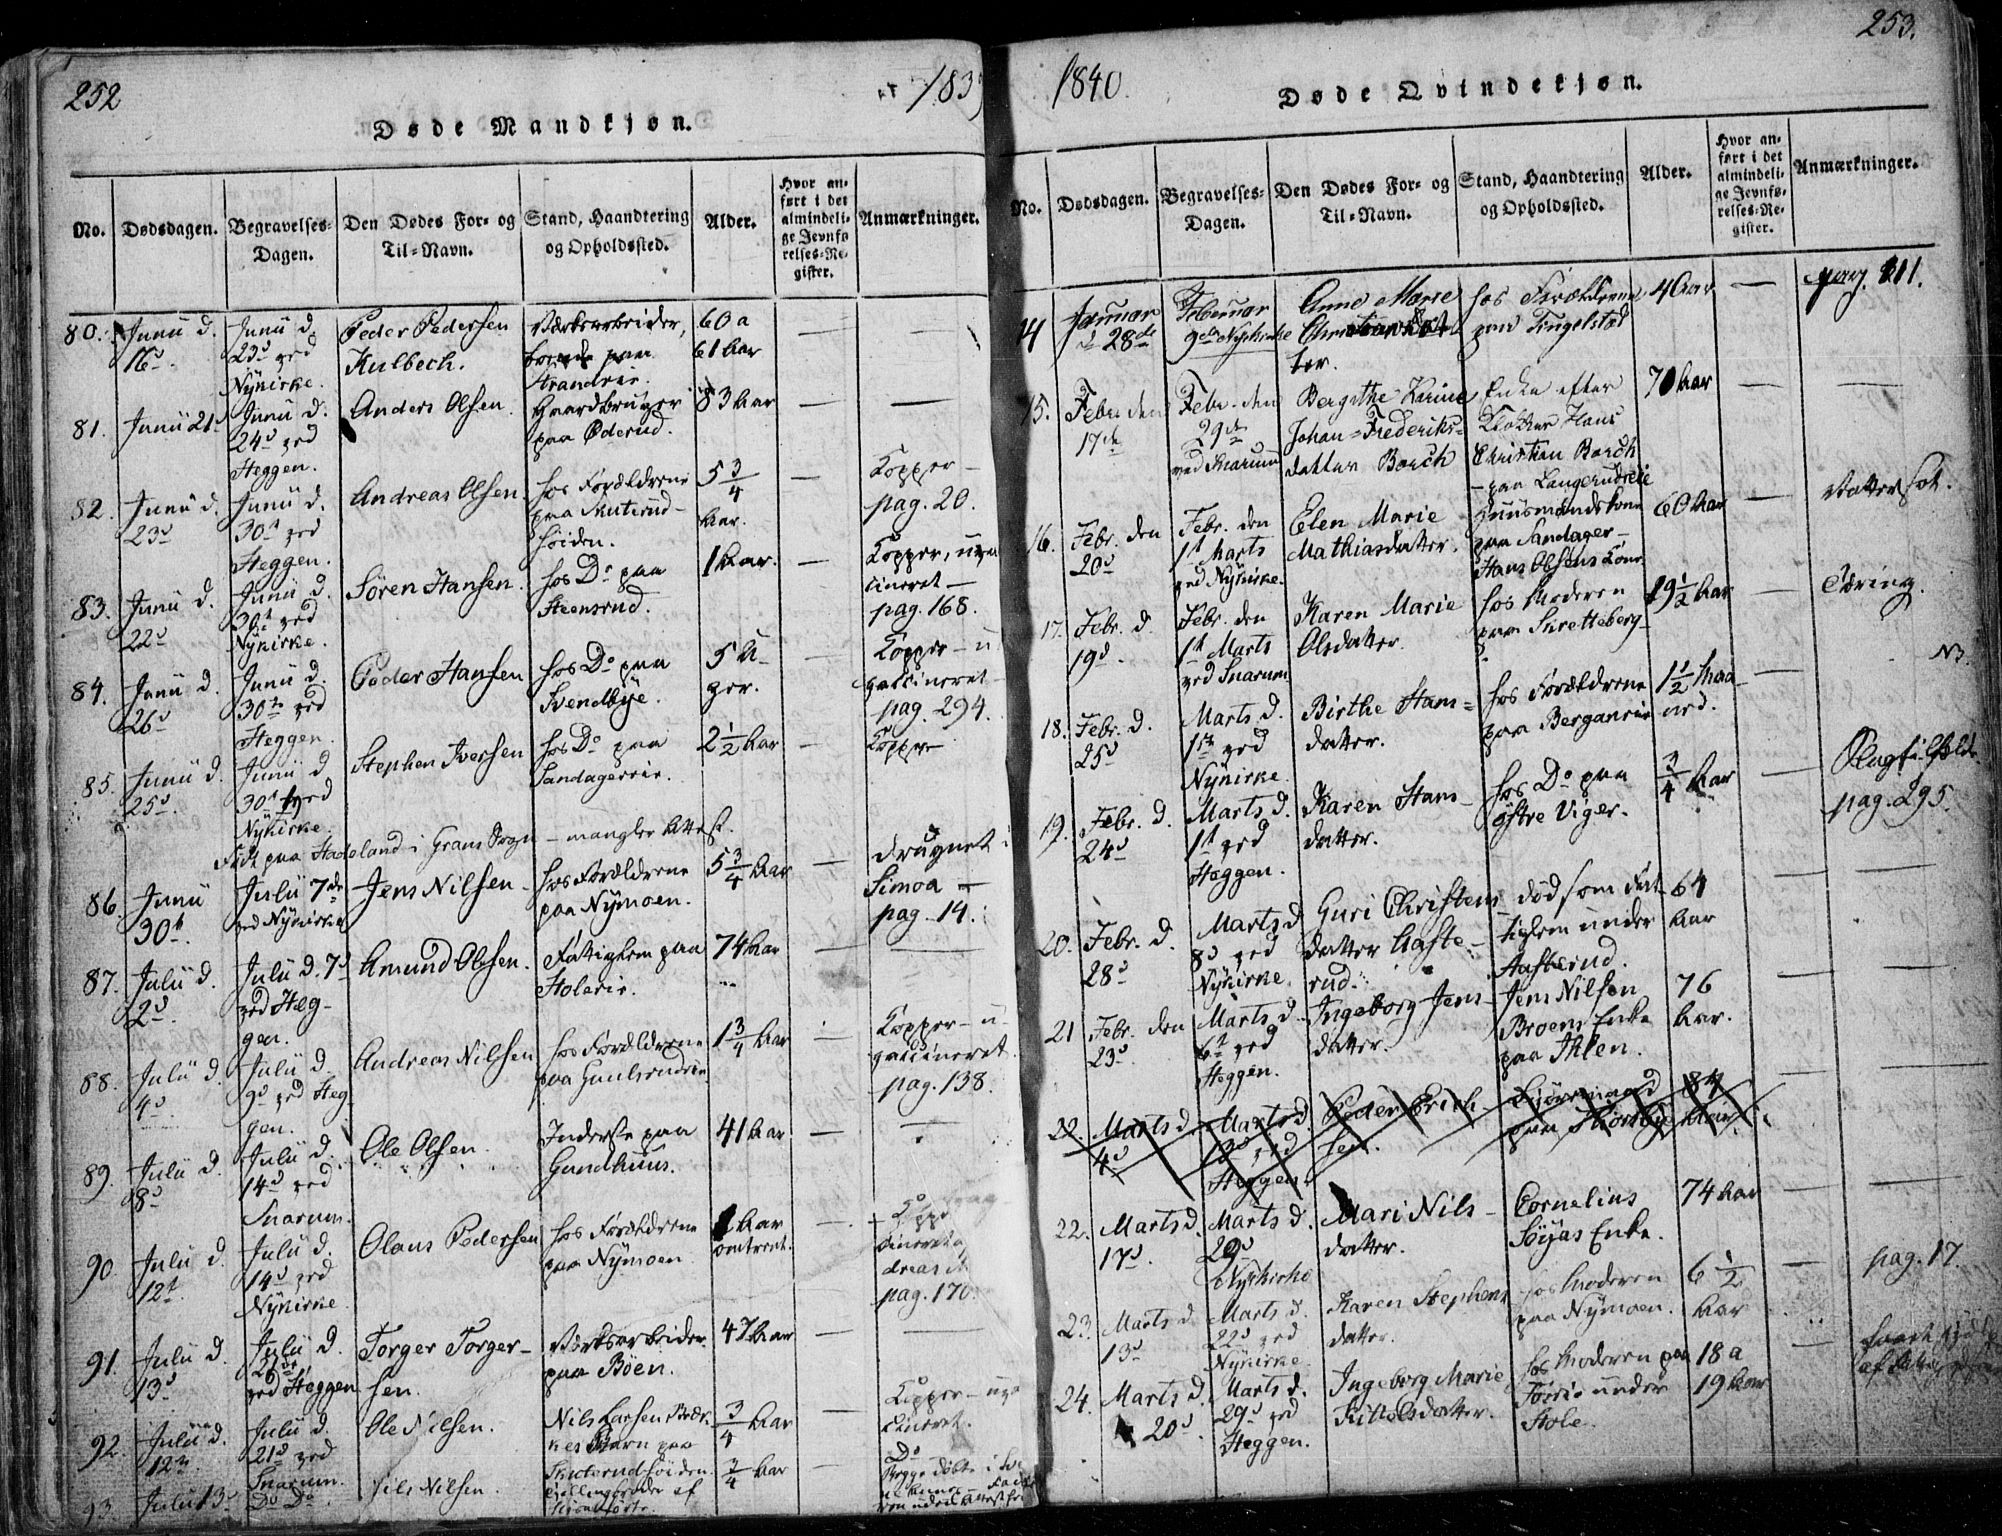 252
1839
Døde Mandkjøn.
No.
Dødsdagen.
Begravelses-
Dagen.
Den Dødes For- og
Til-Navn.
Stand, Haandtering
og Opholdssted.
Alder.
Hvor an-
ført i det
almindeli-
ge Jevnfø
relses-Re-
gister.
Anmærkninger.
80.
Junii d.
16d
Junii d.
23d ved
Nÿkirke.
Peder Pedersen
Kulbech.
Værksarbeider,
boende paa
Strandeie.
60 a
61 Aar
—
—
81.
Junii 21d
Junii d.
24d ved
Heggen.
Anders Olsen.
Gaardbruger
paa Øderud.
83 Aar
—
—
82.
Junii d.
23d
Junii d.
30t ved
Heggen.
Andreas Olsen.
hos Forældrene
paa Skuterud-
høiden.
5 3/4
Aar.
—
Kopper —
pag. 20.
83.
Junii d.
22d
Junii d.
30t ved
Nykirke.
Sören Hansen.
hos Do paa
Steensrud.
1 Aar.
—
Kopper, uva
cineret —
pag. 168.
84.
Junii d.
26d
Junii d.
30te ved
Heggen.
Peder Hansen
hos Do paa
Svendbÿe.
5 U-
ger.
—
Kopper — u
vaccineret —
pag. 294.
85.
Junii d.
25d
Junii d
30t ved
Nÿkirke
Stephen Iversen
hos Do paa
Sandagereie.
2 1/2 Aar
—
Kopper
Født paa Hadeland i Grans Sogn — mangler Attest.
86.
Junii
30t.
Julii 7de
ved Nÿkirke
Jens Nilsen
hos Forældrene
paa Nÿmoen.
5 3/4 Aar
—
druknet i
Simoa —
pag. 14.
87.
Julii d.
2d
Julii d. 7d
ved Heg-
gen.
Amund Olsen.
Fattiglem paa
Holeeie.
74 Aar
—
—
88.
Julii d.
4d
Julii d.
9d ved Heg
gen.
Andreas Nilsen
hos Forældrene
paa Gaulsrudeie.
1 3/4 Aar
Kopper — u-
vaccineret.
pag. 138.
89.
Julii d.
8d
Julii d.
14d ved
Snarum.
Ole Olsen.
Inderste paa
Gundhuus.
41 Aar
—
90.
Julii d.
12t.
Julii d.
14d ved
Nÿkirke
Olaus Pedersen
hos Forældrene
paa Nÿmoen
1 Aar
omtrent.
—
pag. 170.
91.
Julii d.
13d
Julii d.
21de
ved Heggen
Torger Torger-
sen.
Værksarbeider
paa Böen.
47 Aar
—
—
92.
Julii d.
12te
Julii d.
21d ved
Snarum.
Ole Nilsen.
Nils Larsen
Barn paa
Skuterudhöiden
3/4 Aar
—
Kopper — uva
cineret.
93.
Julii 13d
Do Do
Nils Nilsen.
Tvillingbroder af
3/4 Aar
—
Do
253.
1840.
Døde Qvindekjøn.
No.
Dødsdagen.
Begravelses-
Dagen.
Den Dødes For- og
Til-Navn.
Stand, Haandtering
og Opholdssted.
Alder.
Hvor an-
ført i det
almindeli-
ge Jevnfø-
relses-Re-
gister.
Anmærkninger.
14
Januar
d. 28de
Februar
9de Nykirke
Anne Marie
Christiansdat-
ter.
hos Forældrene
paa Tingelstad
4 Aar
—
pag. 111.
15.
Febr. den
17de
Febr. den
29de
ved Snarum
Bergithe Karine
Johan-Frederiks-
datter Borch
Enke efter
Klokker Hans
Christian Borch
paa Langerudeie
70 Aar
—
—
16.
Febr. den
20d
Febr. den
1t Marts
ved Nykirke.
Elen Marie
Mathiasdatter.
Huusmandskone
paa Sandager —
Hans Olsens Kone
60 Aar
—
Vattersot.
17.
Febr. d.
19d.
Febr. den
1t Marts
ved Snarum
Karen Marie
Olsdatter.
hos Moderen
paa Skretteberg
19 1/2 Aar
—
Tæring.
18.
Febr. d.
25d
Marts d.
1te ved
Nykirke.
Birthe Hans-
datter.
hos Forældrene
paa Berganeie
1 1/2 Maa
ned.
—
NB.
19.
Febr. d.
24d
Marts d.
1t ved
Heggen.
Karen Hans-
datter.
hos Do paa
östre Viger.
3/4 Aar
—
pag. 295.
20.
Febr. d.
28d
Marts d
8d ved
Nykirke.
Guri Christens
datter Aaste-
rud.
død som Fat-
tiglem under
Aasterud.
64
Aar
—
—
21
Febr. den
23d
Marts d.
6t ved
Heggen.
Ingeborg Jens-
datter.
Jens Nilsen
Broens Enke
paa Ihlen.
76
Aar.
—
—
22.
Marts d.
4d
Marts d.
13d ved
Heggen.
Peder Erich
sen.
paa
84
Aar.
—
22.
Marts d.
17d.
Marts d.
29d
Nykirke
Mari Nils-
datter.
Cornelius
Söÿas Enke.
74 Aar
—
—
23.
Marts d.
13d
Marts d.
22d ved
Nÿkirke
Karen Stephens
datter.
hos Moderen
paa Nÿmoen.
6 1/2
Aar
—
pag. 17.
24.
Marts d.
20d.
Marts d.
29d ved
Heggen.
Ingeborg Marie
Kittelsdatter.
hos Moderen paa
under
Hole.
18 a
19 Aar